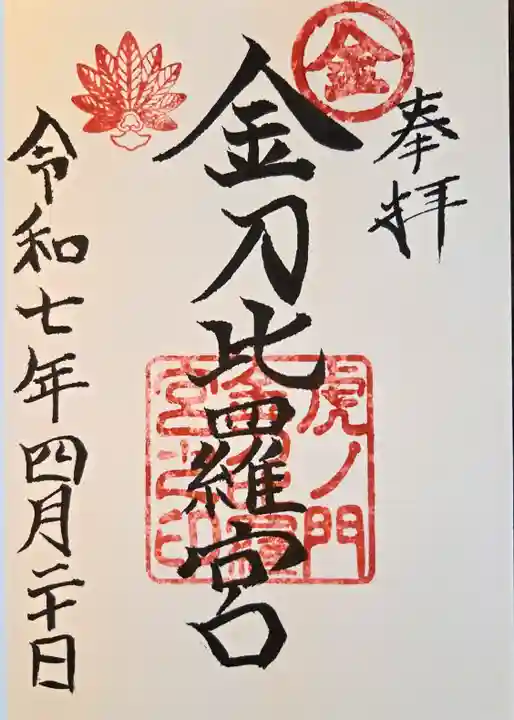 奉拝
金
金刀比羅宮
虎ノ門
金刀比羅
宮之印
令和七年四月二十日